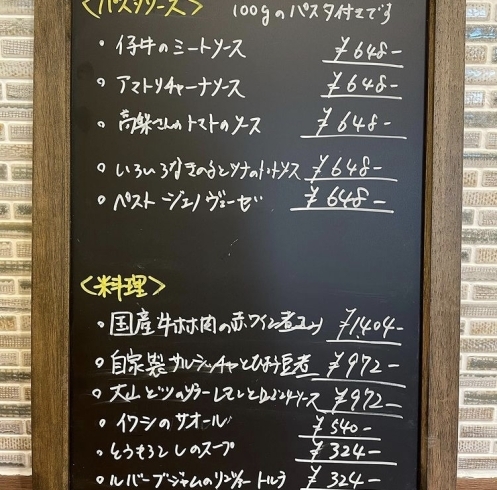 <パスタソース> 100gのパスタ付きです
・仔牛のミートソース ¥648-
・アマトリチャーナソース ¥648-
・高梨さんのトマトのソース ¥648-
・いろいろなきのことツナのトマトソース ¥648-
・ペスト ジェノヴェーゼ ¥648-
<料理>
・国産牛ホホ肉の赤ワイン煮込み ¥1404-
・自家製サルシッチャとひよこ豆煮 ¥972-
¥972-
・イワシのサオール ¥540-
・とうもろこしのスープ ¥324-
・ルバーブジャムのリンツァートルテ ¥324-